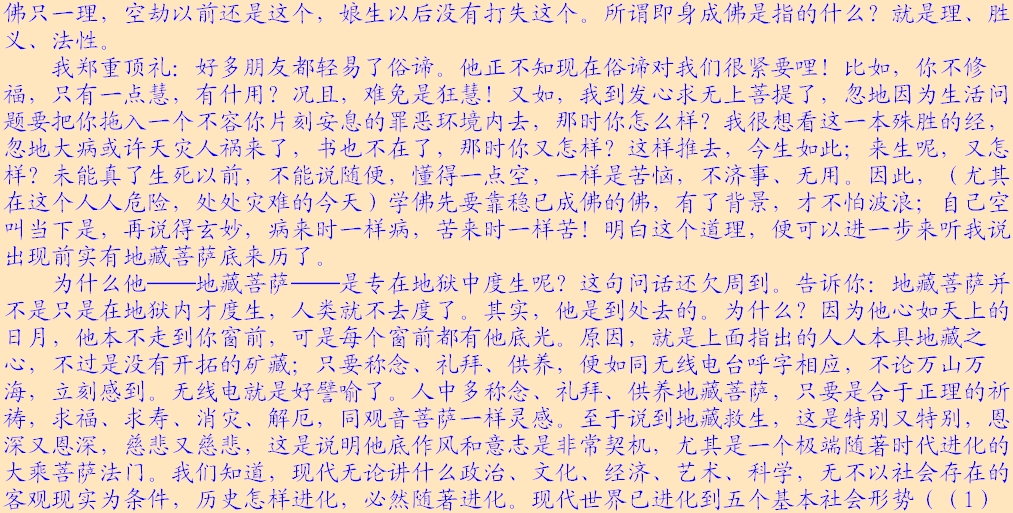 佛只一理，空劫以前还是这个，娘生以后没有打失这个。所谓即身成佛是指的什么？就是理、胜
义、法性。
我郑重顶礼：好多朋友都轻易了俗谛。他正不知现在俗谛对我们很紧要哩！比如，你不修
福，只有一点慧，有什用？况且，难免是狂慧！又如，我到发心求无上菩提了，忽地因为生活问
题要把你拖入一个不容你片刻安息的罪恶环境内去，那时你怎么样？我很想看这一本殊胜的经，
忽地大病或许天灾人祸来了，书也不在了，那时你又怎样？这样推去，今生如此；来生呢，又怎
样？未能真了生死以前，不能说随便，懂得一点空，一样是苦恼，不济事、无用。因此，（尤其
在这个人人危险，处处灾难的今天）学佛先要靠稳已成佛的佛，有了背景，才不怕波浪；自己空
叫当下是，再说得玄妙，病来时一样病，苦来时一样苦！明白这个道理，便可以进一步来听我说
出现前实有地藏菩萨底来历了。
为什么他——地藏菩萨——是专在地狱中度生呢？这句问话还欠周到。告诉你：地藏菩萨并
不是只是在地狱内才度生，人类就不去度了。其实，他是到处去的。为什么？因为他心如天上的
日月，他本不走到你窗前，可是每个窗前都有他底光。原因，就是上面指出的人人本具地藏之
心，不过是没有开拓的矿藏；只要称念、礼拜、供养，便如同无线电台呼字相应，不论万山万
海，立刻感到。无线电就是好譬喻了。人中多称念、礼拜、供养地藏菩萨，只要是合于正理的祈
祷，求福、求寿、消灾、解厄，同观音菩萨一样灵感。至于说到地藏救生，这是特别又特别，恩
深又恩深，慈悲又慈悲，这是说明他底作风和意志是非常契机，尤其是一个极端随著时代进化的
大乘菩萨法门。我们知道，现代无论讲什么政治、文化、经济、艺术、科学，无不以社会存在的
客观现实为条件，历史怎样进化，必然随著进化。现代世界已进化到五个基本社会形势（（1）